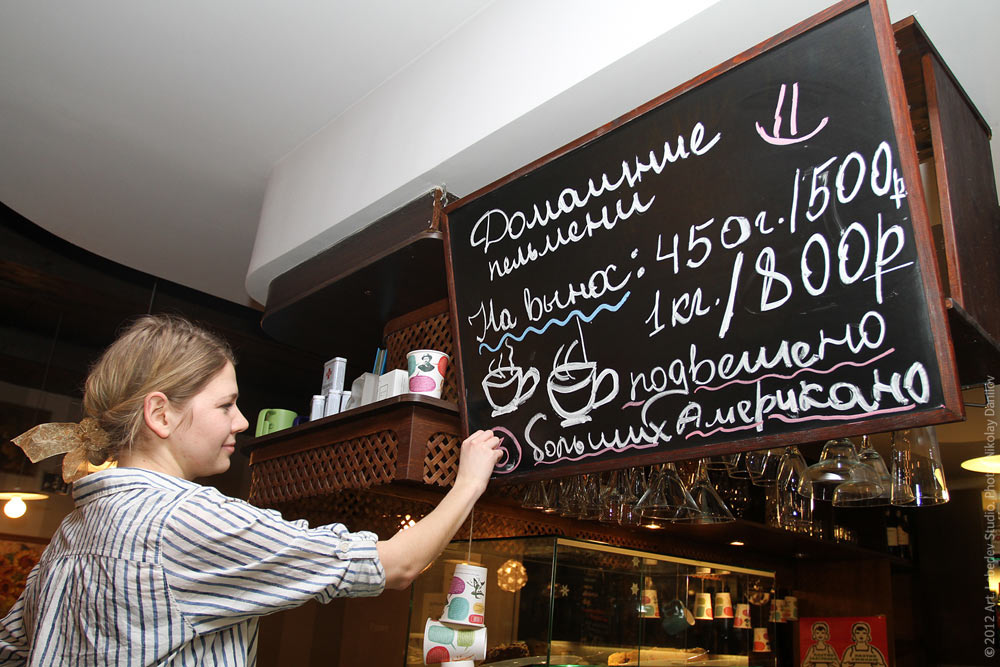 Домашние
пельмени
На вынос: 450г./500р
1кг./800р
подвешено
больших Американо
© 2012 Art. Lebedev Studio. Photo Nikolay Danilov